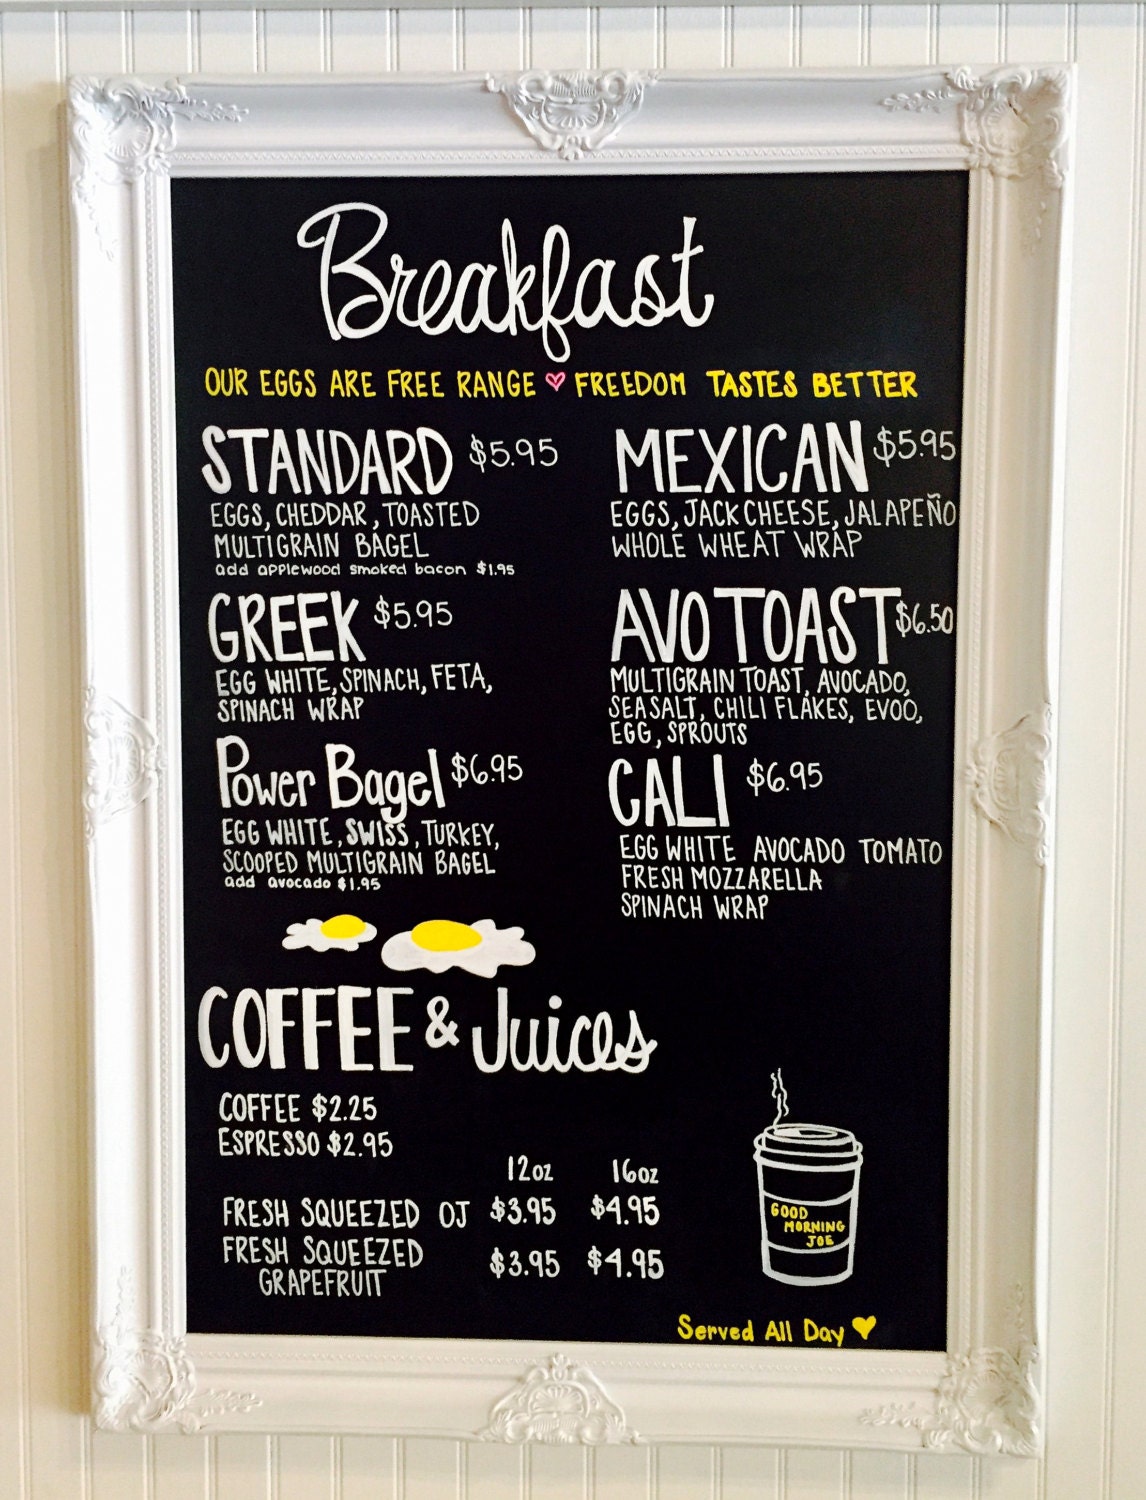 Breakfast
OUR EGGS ARE FREE RANGE FREEDOM TASTES BETTER
STANDARD $5.95
EGGS, CHEDDAR, TOASTED
MULTIGRAIN BAGEL
add applewood smoked bacon $1.95
GREEK $5.95
EGG WHITE, SPINACH, FETA,
SPINACH WRAP
Power Bagel $6.95
EGG WHITE, SWISS, TURKEY,
SCOOPED MULTIGRAIN BAGEL
add avocado $1.95
MEXICAN $5.95
EGGS, JACK CHEESE, JALAPEÑO
WHOLE WHEAT WRAP
AVO TOAST $6.50
MULTIGRAIN TOAST, AVOCADO,
SEA SALT, CHILI FLAKES, EVOO,
EGG, SPROUTS
CALI $6.95
EGG WHITE AVOCADO TOMATO
FRESH MOZZARELLA
SPINACH WRAP
COFFEE & Juices
COFFEE $2.25
ESPRESSO $2.95
12oz 16oz
FRESH SQUEEZED OJ $3.95 $4.95
FRESH SQUEEZED
GRAPEFRUIT $3.95 $4.95
GOOD
MORNING
JOE
Served All Day